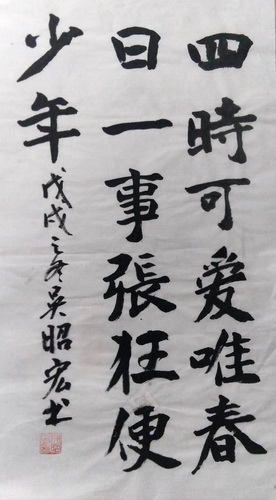 四時可愛唯春
日一事張狂便
少年
戊戌之冬吴昭宏书